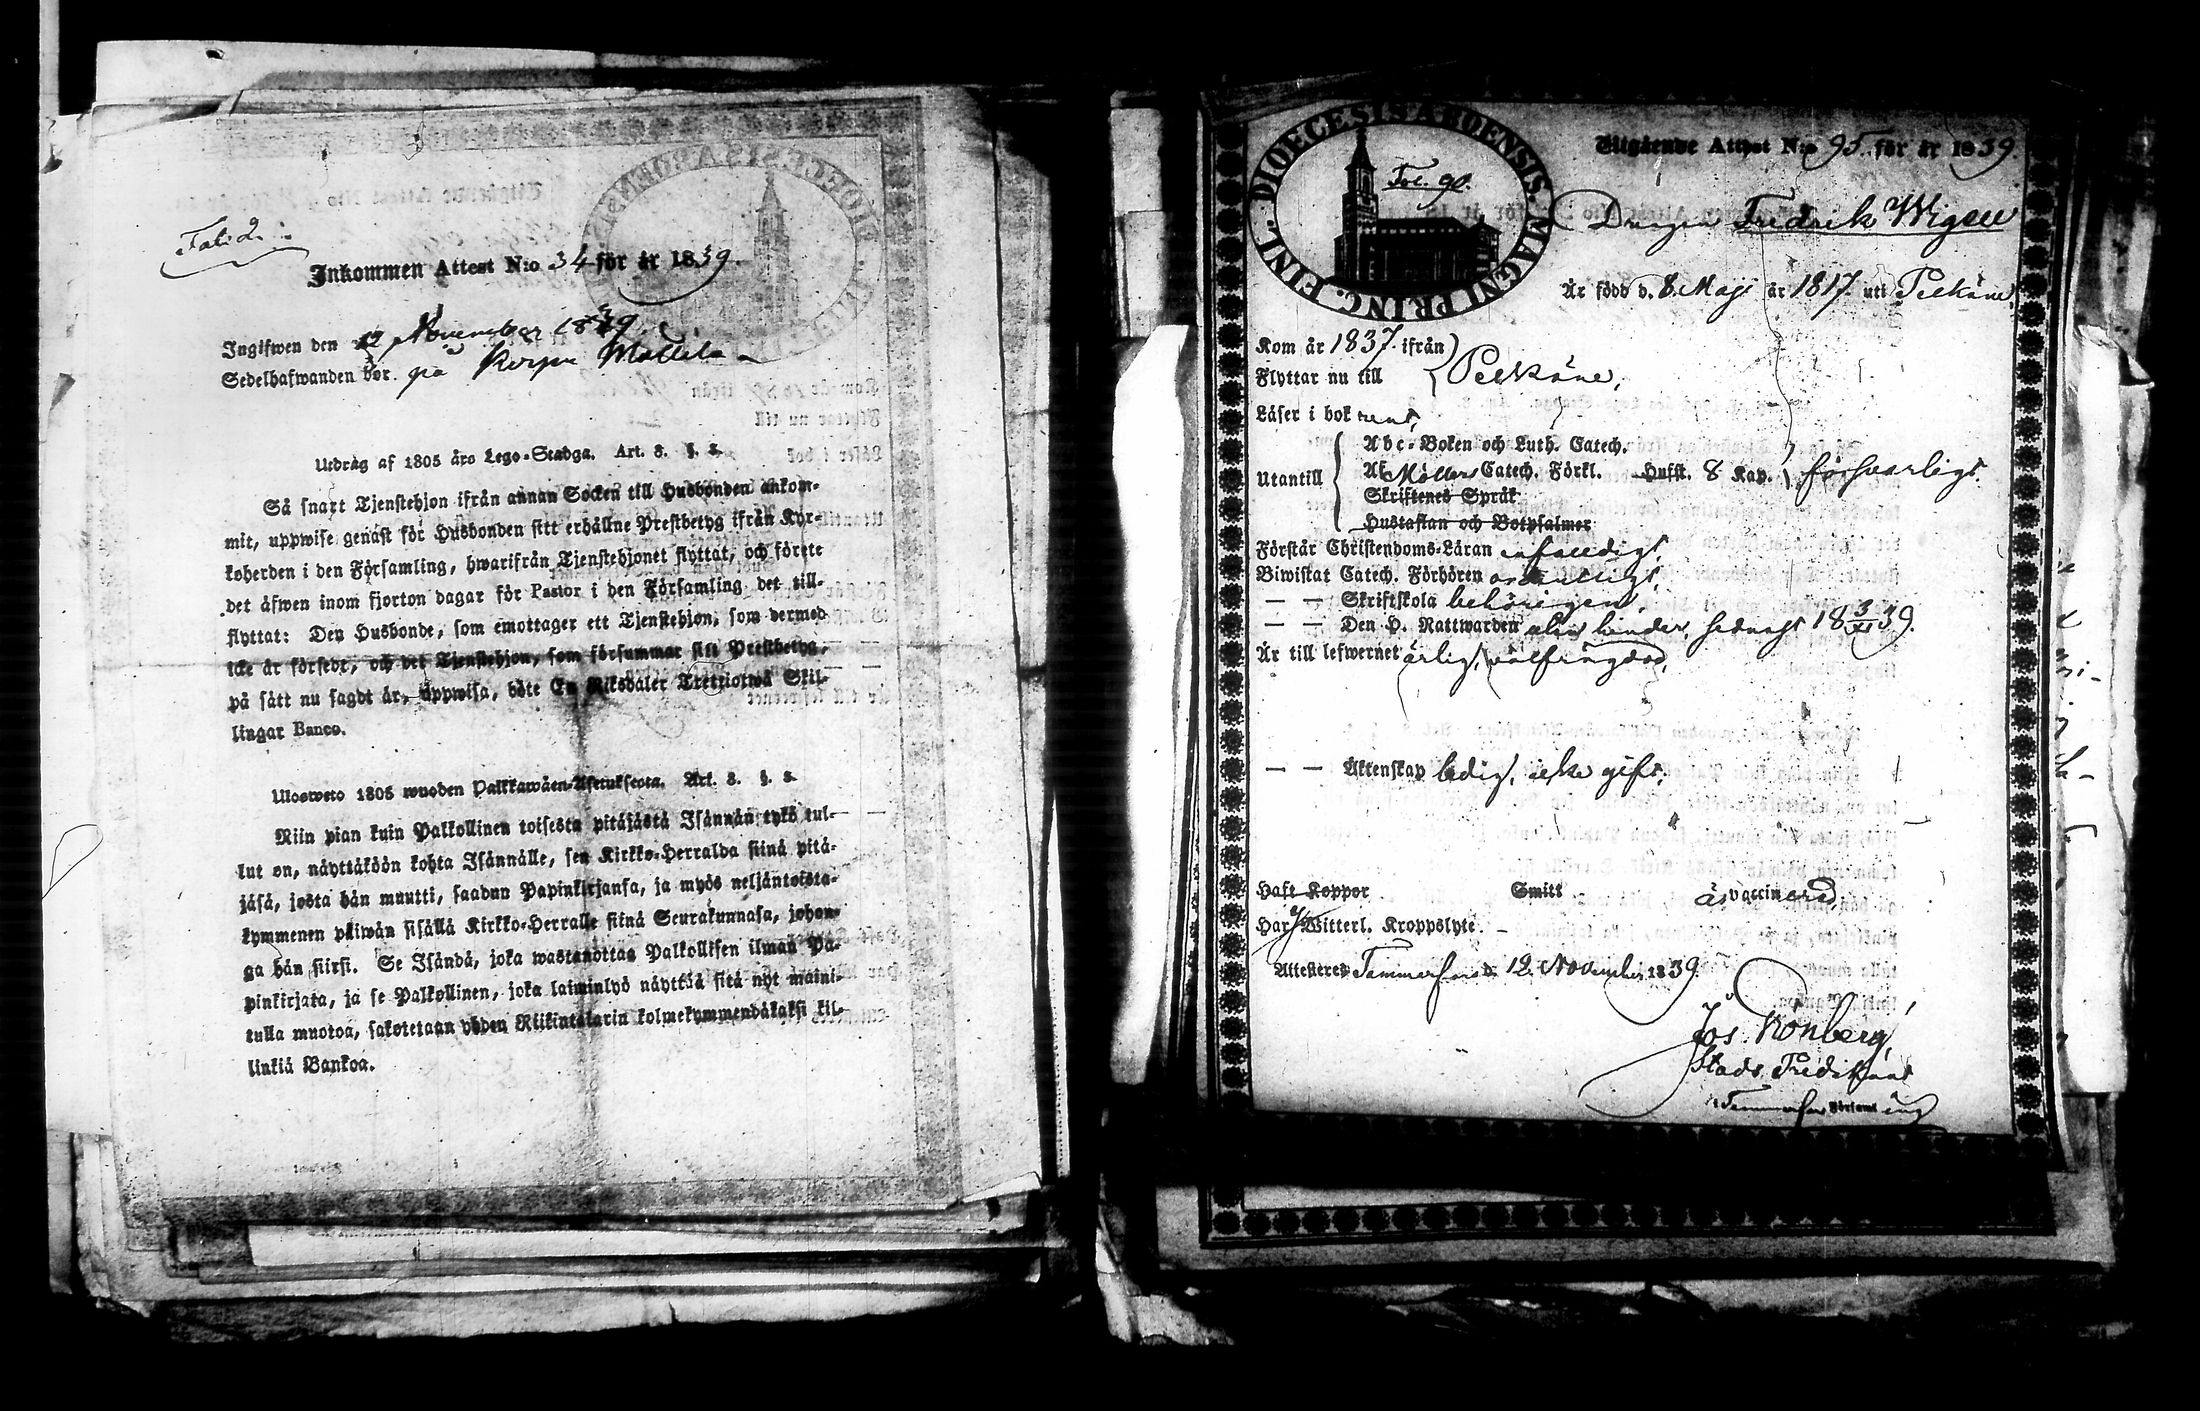 Fol. 2.
Inkommen Attest N:o 34 för år 1839.
Ingifwen den 12 November 1839.
Sedelhafwanden bor på Korpu Mattila
Utdrag af 1805 års Lego-Stadga. Art. 3. §. 2.
Så snart Tjenstehjon ifrån annan Socken till Husbonden ankom-
mit, uppwise genast för Husbonden sitt erhållne Prestbetyg ifrån Kyr-
koherden i den Församling, hwarifrån Tjenstehjonet flyttat, och förete
det äfwen inom fjorton dagar för Pastor i den Församling det till-
flyttat: Den Husbonde, som emottager ett Tjenstehjon, som dermed
icke är försedt, och det Tjenstehjon, som försummar sitt Prestbetyg,
på sätt nu sagdt är, uppwisa, böte En Riksdaler Trettiotwå Skil-
lingar Banco.
Ulosweto 1805 wuoden Palkkawäen-Asetuksesta. Art. 3. §. 2.
Niin pian kuin Palkollinen toisesta pitäjästä Isännän tykö tul-
lut on, näyttäköön kohta Isännälle, sen Kirkko-Herralda siinä pitä-
jäsä, josta hän muutti, saadun Papinkirjansa, ja myös neljäntoista-
kymmenen päiwän sisällä Kirkko-Herralle siinä Seurakunnasa, johon-
ga hän siirsi. Se Isändä, joka wastanottaa Palkollisen ilman Pa-
pinkirjata, ja se Palkollinen, joka laiminlyö näyttää sitä nyt maini-
tulla muotoa, sakotetaan yhden Riikintalarin kolmekymmendäkaksi kil-
linkiä Bankoa.
DIOECESIS ABOENSIS. MAGNI PRINC. FINL.
Fol. 90.
Utgående Attest N:o 95 för år 1839.
Drengen Fredrik Wigell
Är född d. 8 Maji år 1817 uti Pelkäne,
Kom år 1837 ifrån
Flyttar nu till Pelkäne,
Läser i bok rent,
Utantill
Abc-Boken och Luth. Catech.
Af Möllers Catech. Förkl. Hufst. 8 Kap. försvarligt.
Skriftenes Språk
Hustaflan och Botpsalmer
Förstår Christendoms-Läran enfaldigt
Biwistat Catech. Förhören ordentligt,
— — Skriftskola behörigen,
— — Den H. Nattwarden utan hinder, sednast 18 3/11 39.
Är till lefwernet ärlig, välfrägdad,
— — Äktenskap ledig, icke gift,
Haft Koppor Smitt äs vaccinerad,
Har ej Witterl. Kroppslyte.
Attesteres Tammerfors d. 12 November 1839.
Jos. Rönberg,
Stads Predikant
i Tammerfors Församling